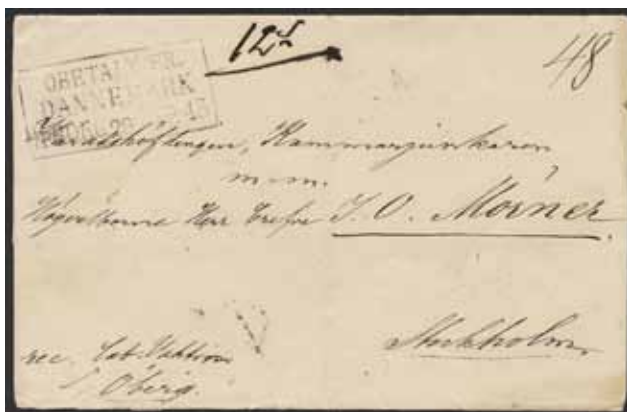 12
48
OBETALT FR.
DANNEMARK
Landshöfdingen, Kammarjunkaren
m.m.
Högvälborne Herr Grefve J. O. Mörner
Stockholm
rec.
Öberg.